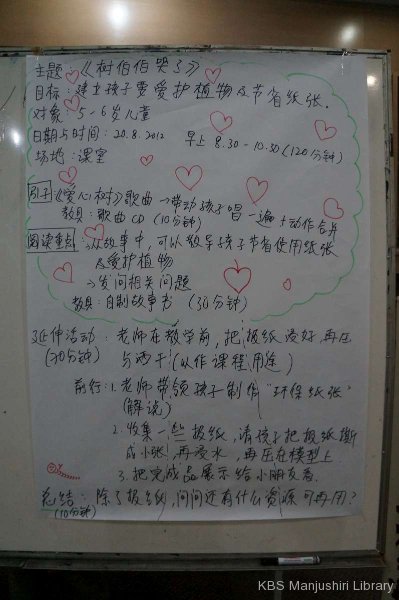 主题：《树伯伯哭了》
目标：建立孩子要爱护植物及节省纸张.
对象：5-6岁儿童
日期与时间：20.8.2012 早上 8.30-10.30 (120分钟)
场地：课室
引子《爱心树》歌曲→带动孩子唱一遍+动作合并
教具：歌曲CD (10分钟)
阅读重点→从故事中，可以教导孩子节省使用纸张
及爱护植物
→发问相关问题
教具：自制故事书 (30分钟)
延伸活动：老师在教学前，把报纸浸好，再压
(70分钟) 与晒干 (以作课程用途)
前行：1. 老师带领孩子制作 "环保纸张"
(解说)
2. 收集一些报纸，请孩子把报纸撕
成小张，再浸水，再压在模型上
3. 把完成品展示给小朋友看.
总结：除了报纸，问问还有什么资源可再用？
(10分钟)
KBS Manjushri Library